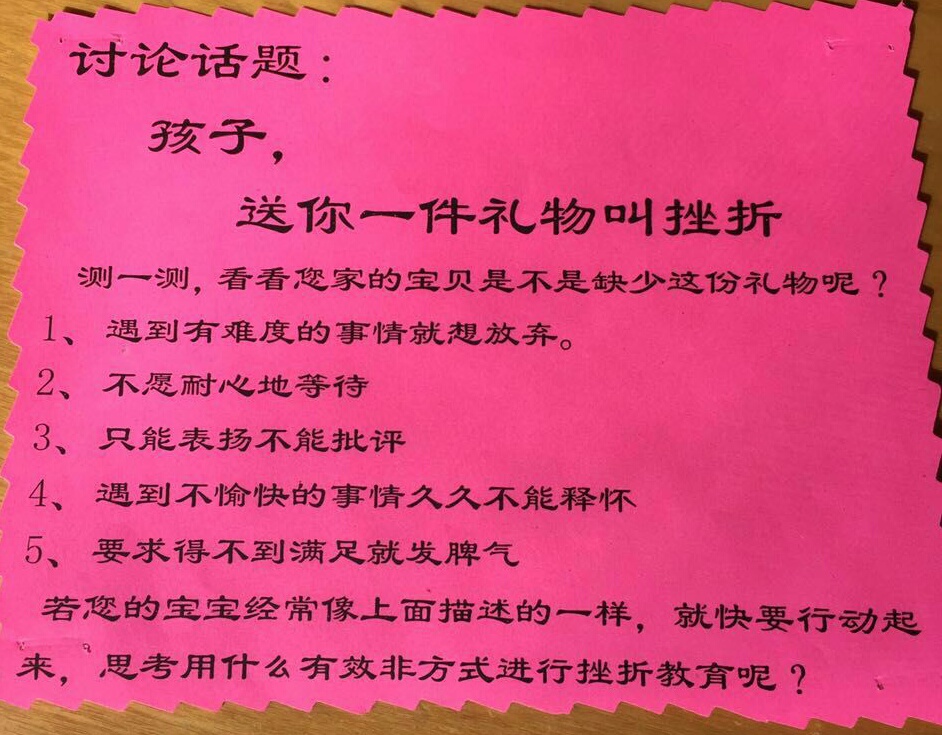 讨论话题：
孩子，
送你一件礼物叫挫折
测一测，看看您家的宝贝是不是缺少这份礼物呢？
1、遇到有难度的事情就想放弃。
2、不愿耐心地等待
3、只能表扬不能批评
4、遇到不愉快的事情久久不能释怀
5、要求得不到满足就发脾气
若您的宝宝经常像上面描述的一样，就快要行动起
来，思考用什么有效非方式进行挫折教育呢？